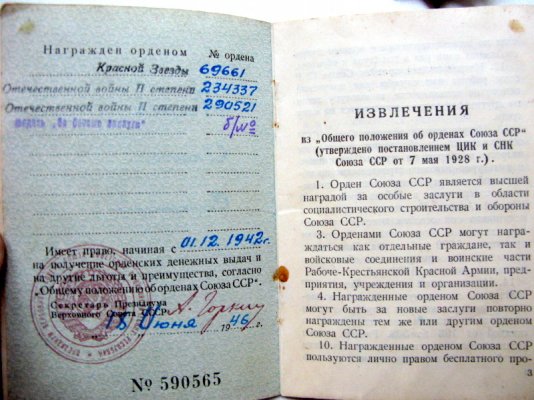 Награжден орденом № ордена
Красной Звезды 69661
Отечественной войны II степени 234337
Отечественной войны II степени 290521
медаль „За боевые заслуги“ б/№
Имеет право, начиная с 01.12.1942 г.
на получение орденских денежных выдач и
на другие льготы и преимущества, согласно
„Общему положению об орденах Союза ССР“.
Секретарь Президиума
Верховного Совета СССР А. Горкин
„18 Июня 1946 г.
№ 590565
ИЗВЛЕЧЕНИЯ
из „Общего положения об орденах Союза ССР“
(утверждено постановлением ЦИК и СНК
Союза ССР от 7 мая 1928 г.).
1. Орден Союза ССР является высшей
наградой за особые заслуги в области
социалистического строительства и обороны
Союза ССР.
3. Орденами Союза ССР могут на-
граждаться как отдельные граждане, так и
войсковые соединения и воинские части
Рабоче-Крестьянской Красной Армии, пред-
приятия, учреждения и организации.
4. Награжденные орденом Союза ССР
могут быть за новые заслуги повторно
награждены тем же или другим орденом
Союза ССР.
10. Награжденные орденом Союза ССР
пользуются лично правом бесплатного про-